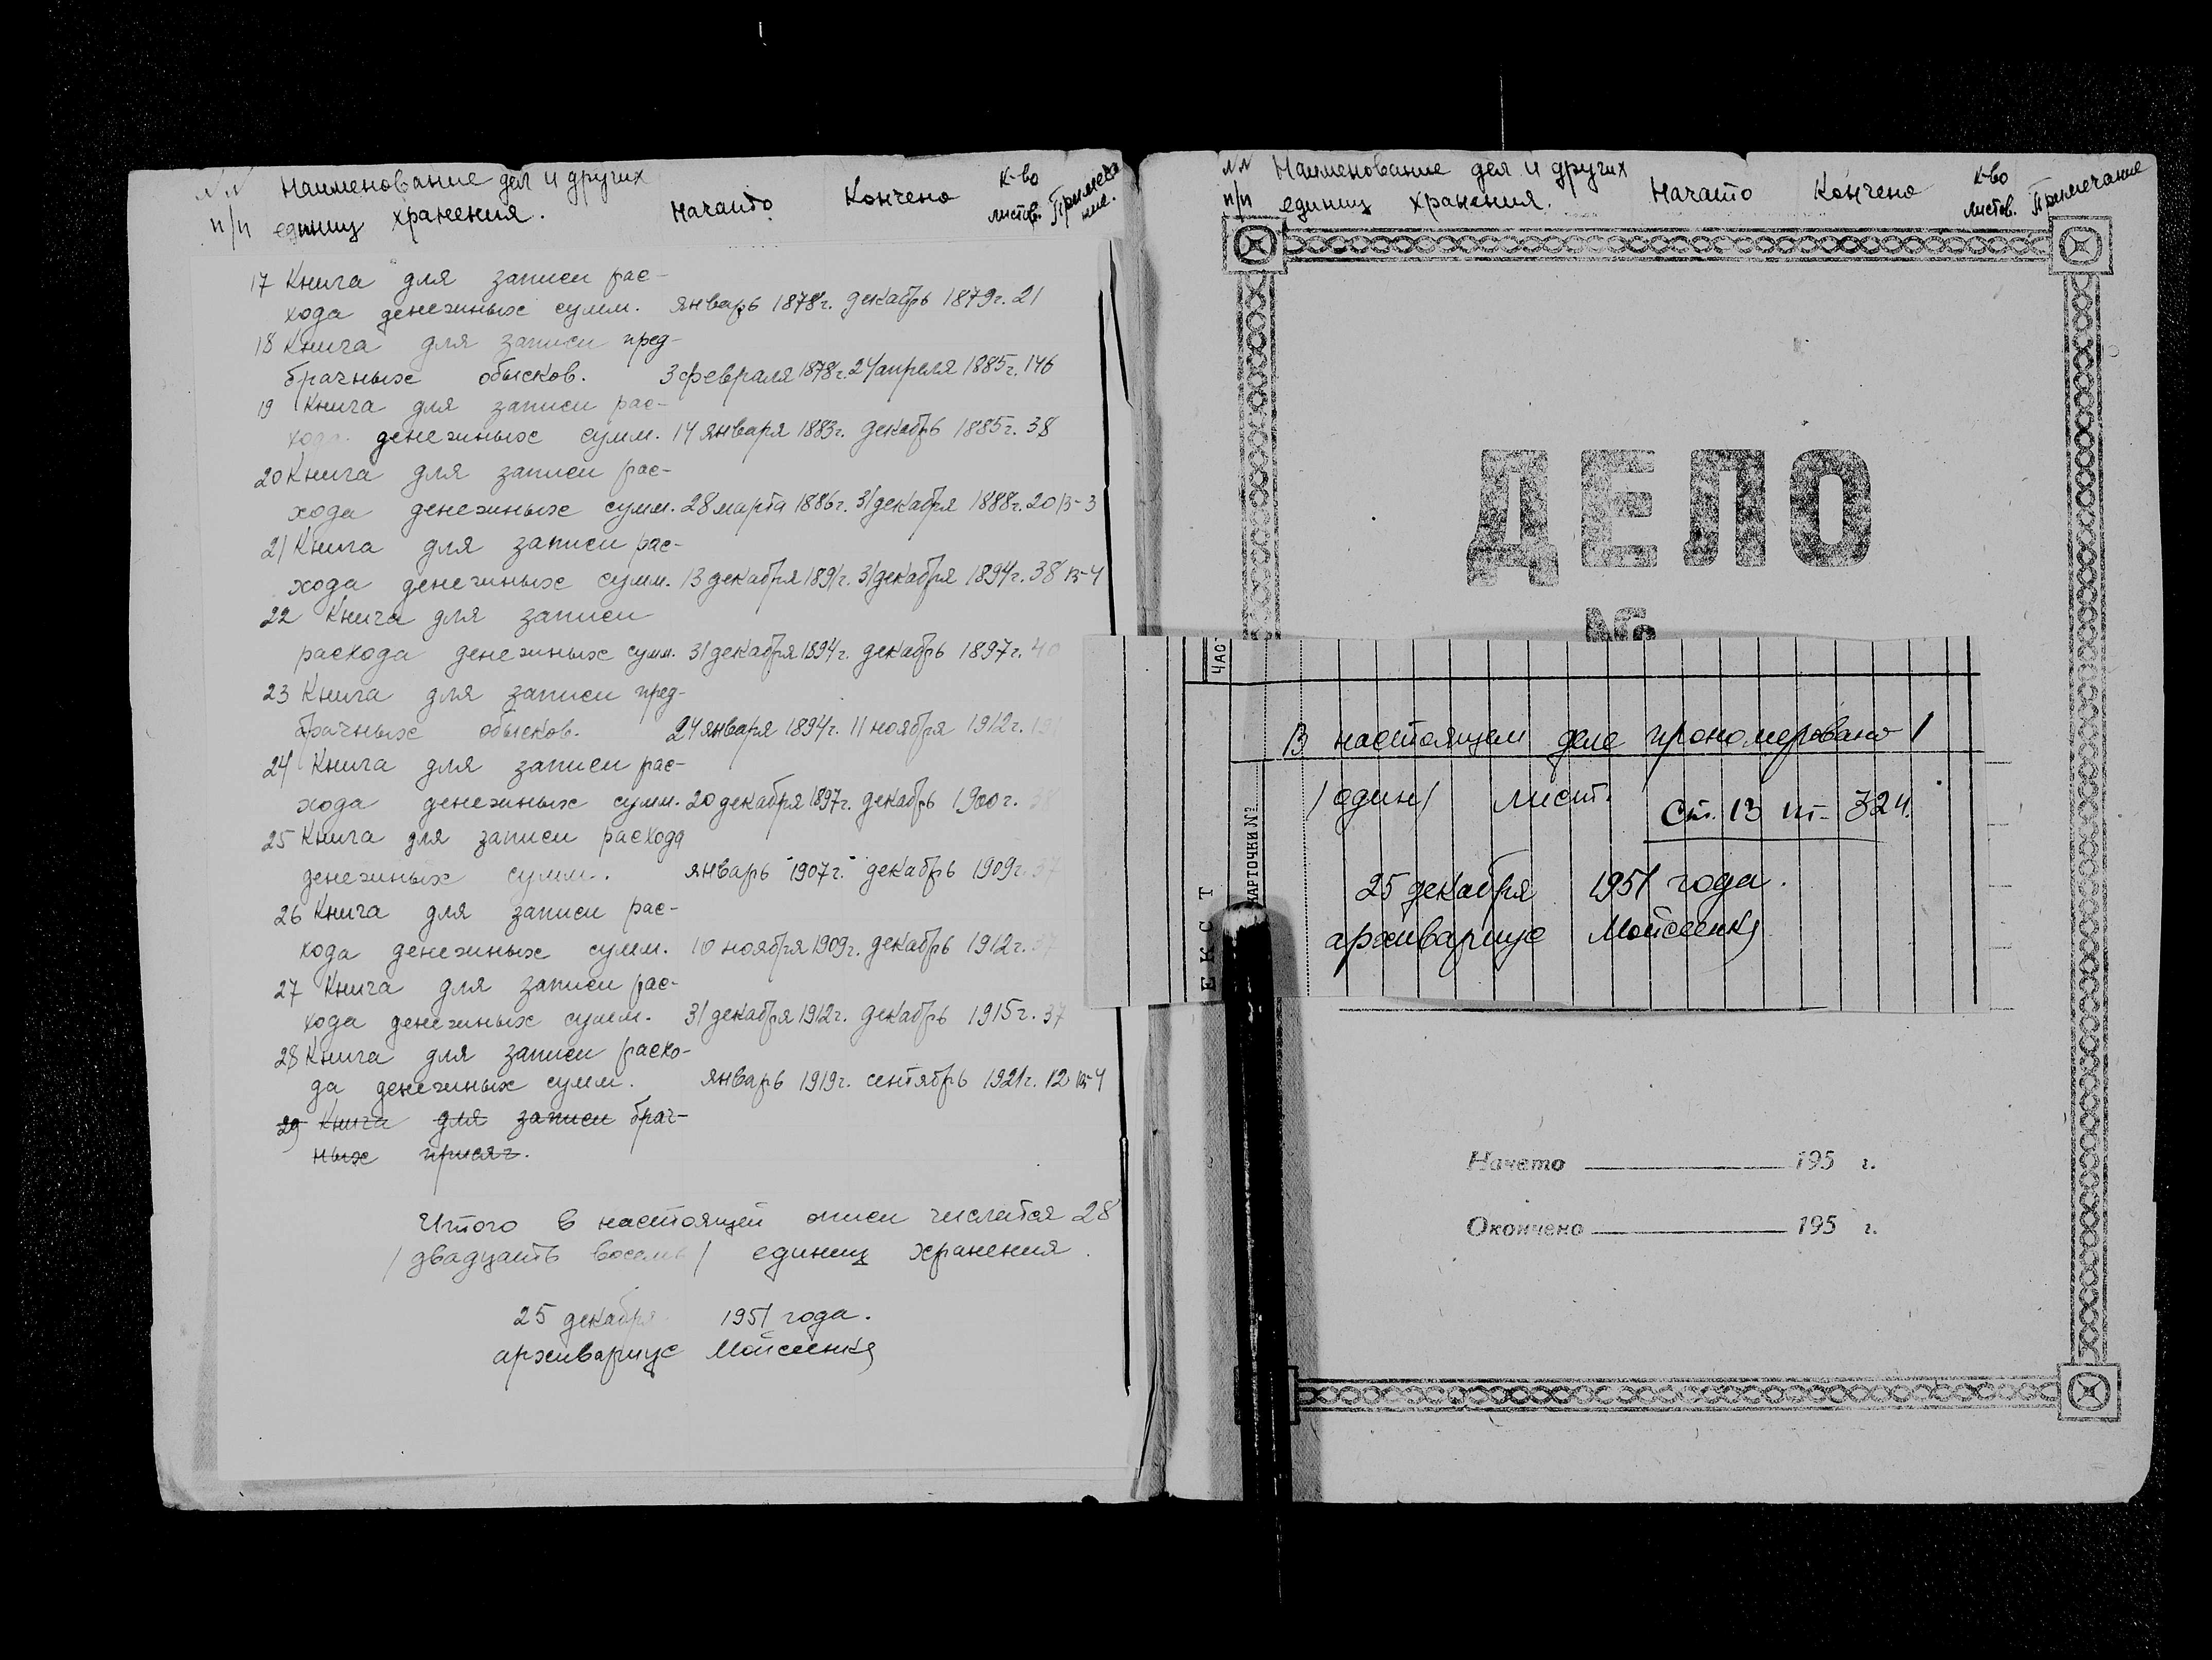 №№ Наименование дел и других Начато Кончено к-во Примеча
п/п единиц хранения. листов. ние.
17 Книга для записи рас-
хода денежных сумм. январь 1878г. декабрь 1879г. 21
18 Книга для записи пред-
брачных обысков. 3 февраля 1878г. 24 апреля 1885г. 146
19 Книга для записи рас-
хода денежных сумм. 14 января 1883г. декабрь 1885г. 38
20 Книга для записи рас-
хода денежных сумм. 28 марта 1886г. 31 декабря 1888г. 20 В-3
21 Книга для записи рас-
хода денежных сумм. 13 декабря 1891г. 31 декабря 1894г. 38 В-4
22 Книга для записи
расхода денежных сумм. 31 декабря 1894г. декабрь 1897г. 40
23 Книга для записи пред-
брачных обысков. 24 января 1894г. 11 ноября 1912г.
24 Книга для записи рас-
хода денежных сумм. 20 декабря 1897г. декабрь 1900г. 38
25 Книга для записи расхода
денежных сумм. январь 1907г. декабрь 1909г. 37
26 Книга для записи рас-
хода денежных сумм. 10 ноября 1909г. декабрь 1912г. 37
27 Книга для записи рас-
хода денежных сумм. 31 декабря 1912г. декабрь 1915г. 37
28 Книга для записи расхо-
да денежных сумм. январь 1919г. сентябрь 1921г. 12 В-4
29 Книга для записи брач-
ных присяг.
Итого в настоящей описи числится 28
/двадцать восемь/ единиц хранения.
25 декабря 1951 года.
архивариус Мойсеенко
№№ Наименование дел и других Начато Кончено к-во Примечание
п/п единиц хранения. листов.
ДЕЛО
№
ЧАС
КАРТОЧКИ №
ЕКСТ
В настоящем деле прономеровано 1
/один/ лист. Ст. 13 ш- 324.
25 декабря 1951 года.
архивариус Мойсеенко
Начато 195 г.
Окончено 195 г.